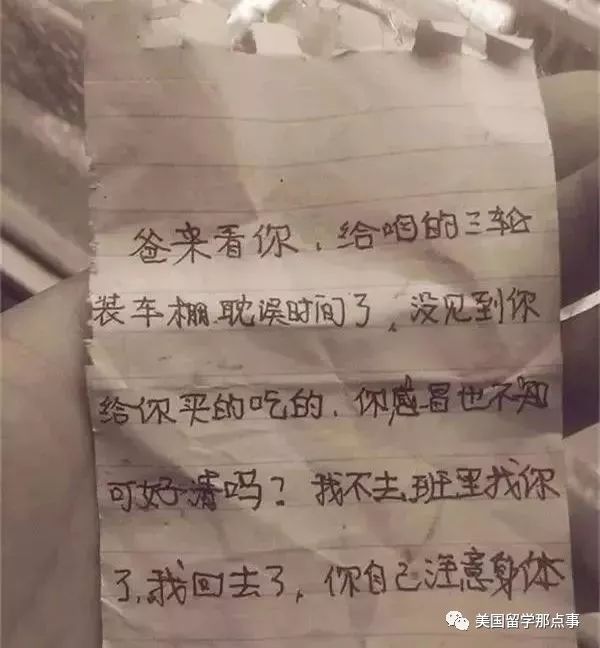 爸来看你，给咱的三轮
装车棚耽误时间了，没见到你
给你买的吃的，你感冒也不知
可好清吗？我不去班里找你
了，我回去了，你自己注意身体
美国留学那点事